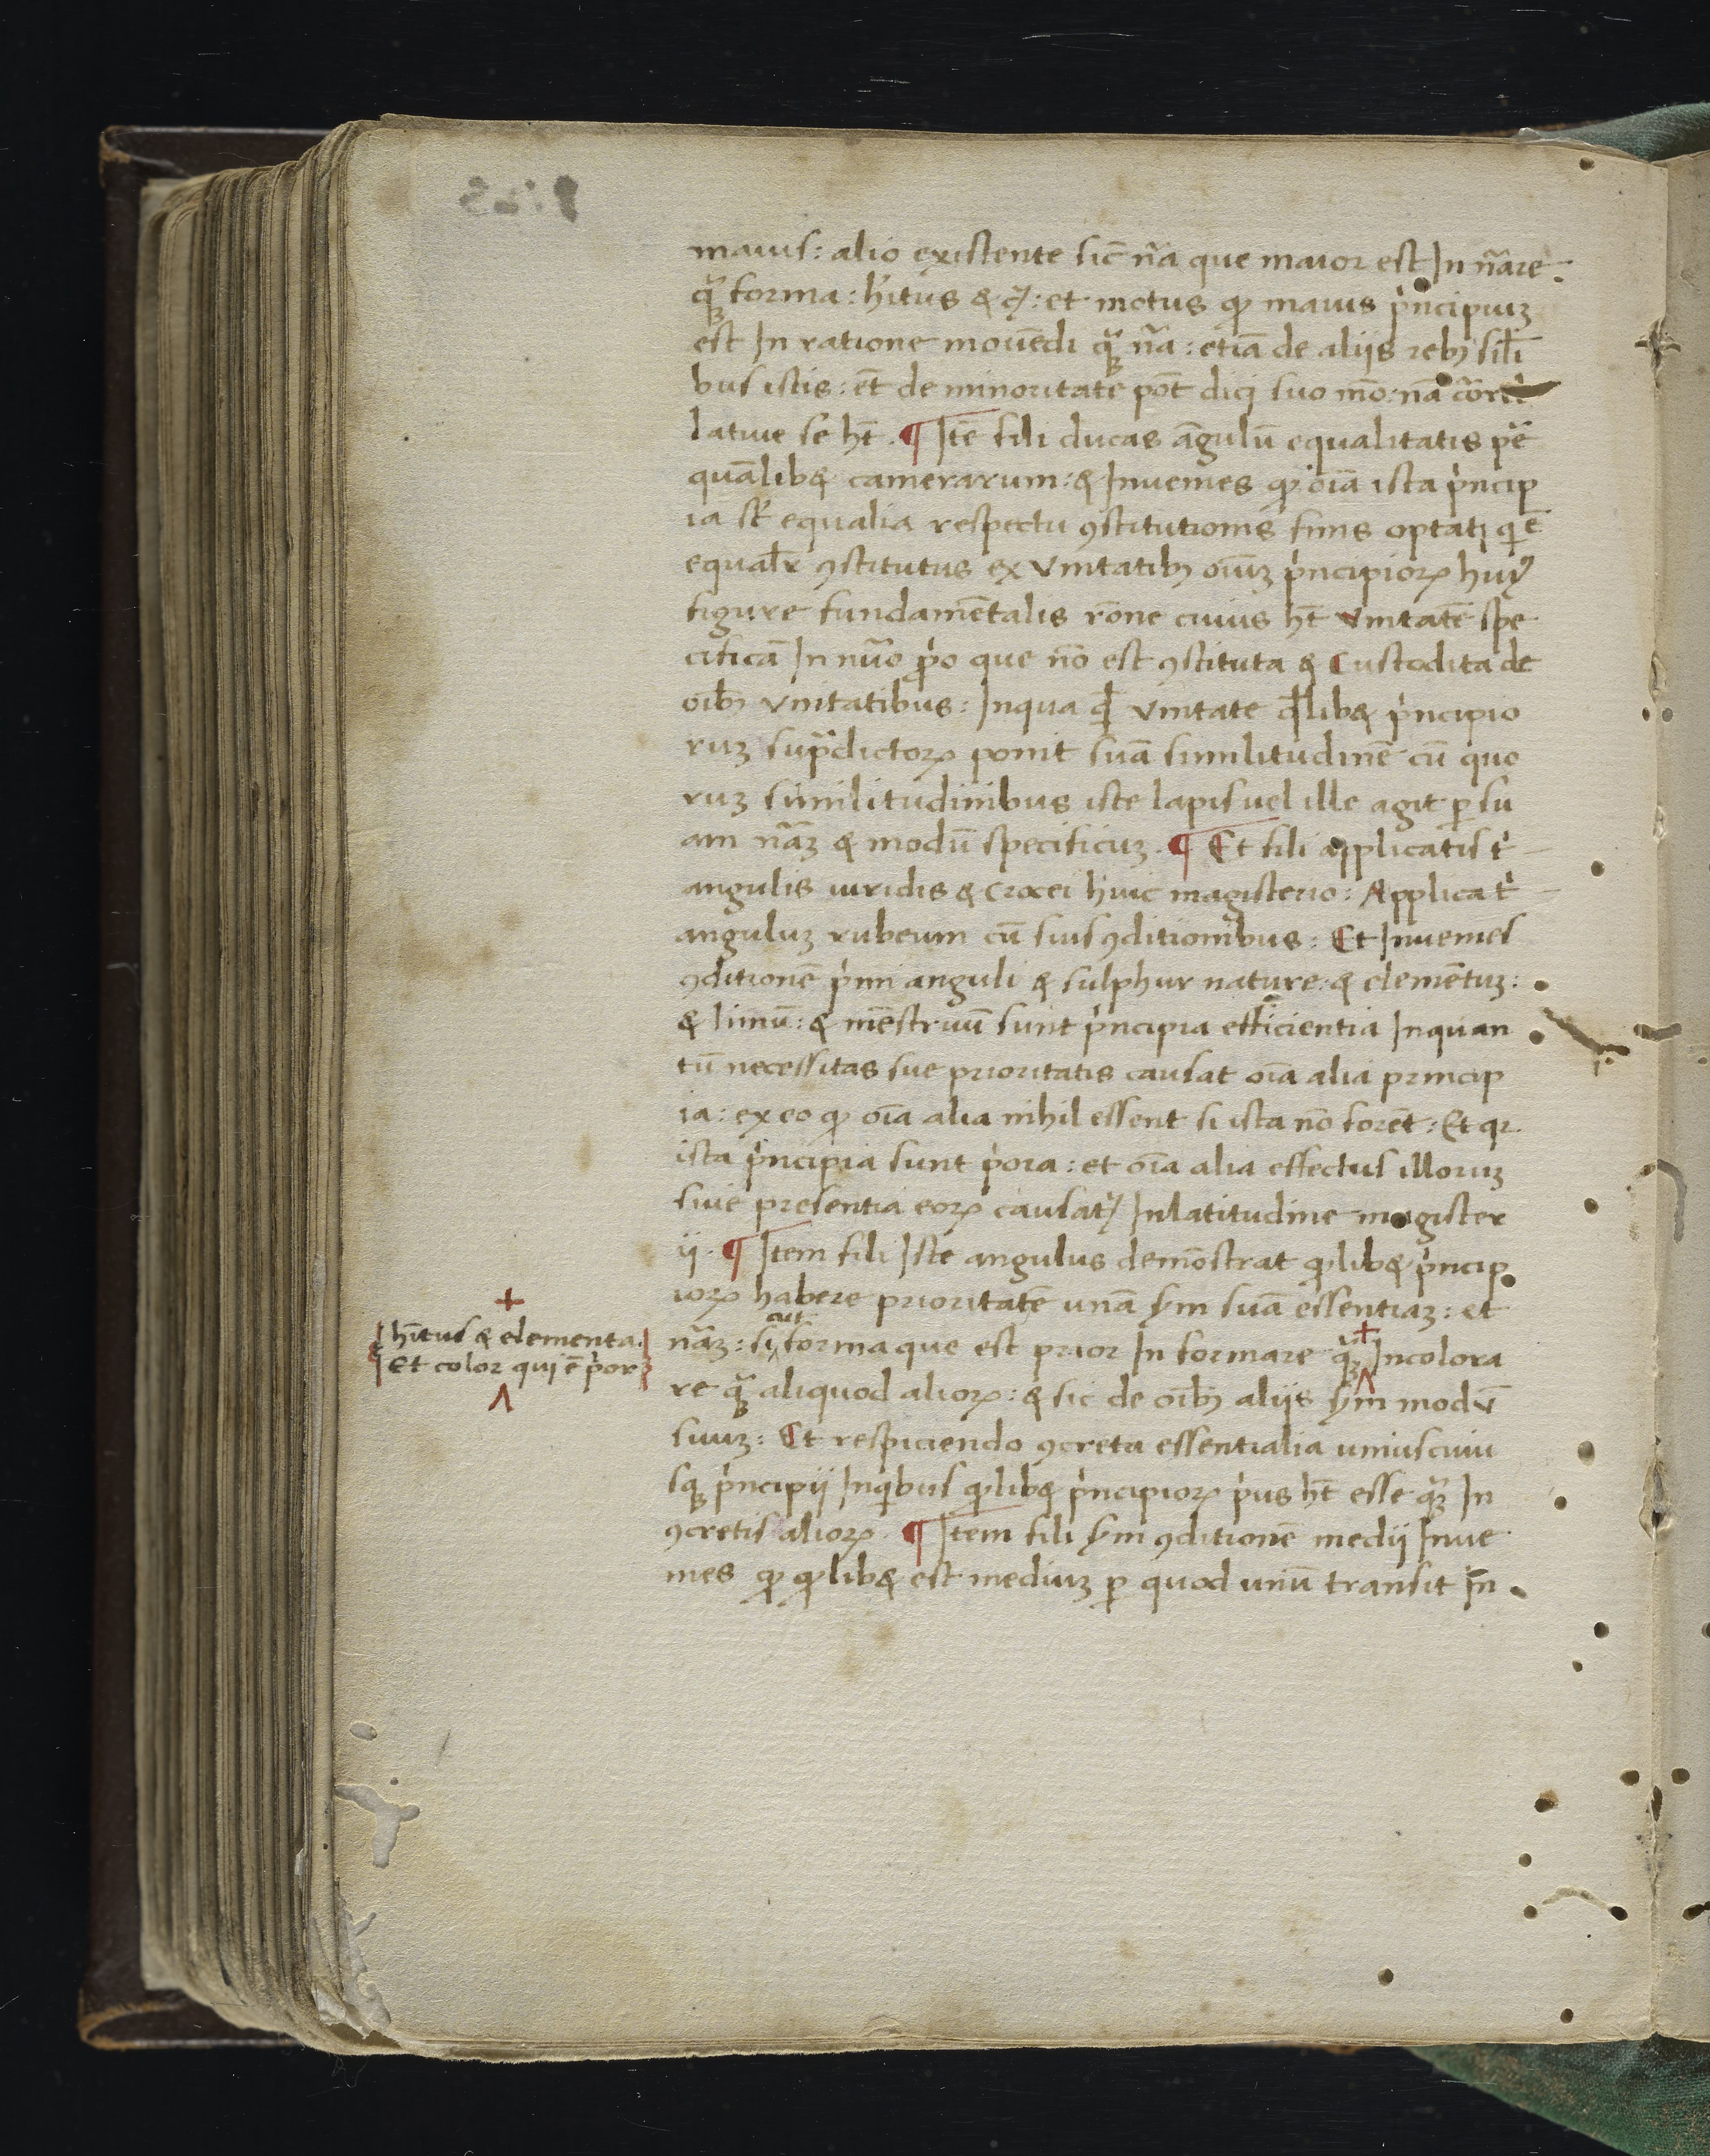 maius: alio existente sic̃ nã̃a que maior est In nãre
q̃ꝫ forma: h̃itus & cꝫ: et motus ꝙ maius p̃ncipiuꝫ
est In ratione mouẽdi q̃ꝫ nã: etiã de aliis rebꝫ sil̃i
bus istis: et̃ de minoritate põt dici suo mõ: nã cõrre
latiue se hñt. ¶ Itẽ fili ducas ãngulũ equalitatis per
quãlibꝫ camerarum: & Inuenies ꝙ oĩa ista p̃ncip
ia st̃ equalia respectu ꝯstitutionis finis optati qi ẽ
equalr̃ ꝯstitutus ex vnitatibꝫ oĩuꝫ p̃ncipioꝝ huiꝰ
figure fundamẽtalis rõne cuius ht̃ vnitatẽ spe
cificã In nũo p̃o que nõ est ꝯstituta & Custodita de
oĩbꝫ vnitatibus: Inqua qĩdẽ vnitate qĩlibꝫ p̃ncipio
ruꝫ sup̃dictoꝝ ponit suã similitudinẽ cũ quo
ruꝫ similitudinibus iste lapis uel ille agit ꝑ su
am nãꝫ & modũ specificuꝫ. ¶ Et fili applicatis t̃
angulis uiridis & Crocei huic magisterio: Applica t̃
anguluꝫ rubeum cũ suis ꝯditionibus: Et Inuenies
ꝯditionẽ p̃mi anguli & sulphur nature: & elemẽtuꝫ:
& limũ: & mẽstruũ sunt p̃ncipia efficientia Inquan
tũ necessitas sue prioritatis causat oĩa alia princip
ia: ex eo ꝙ oĩa alia nihil essent si ista nõ forẽt: Et qr
ista p̃ncipia sunt p̃ora: et oĩa alia effectus illoruꝫ
siue presentia eoꝝ causatꝰ Inlatitudine magister
ii. ¶ Item fili Iste angulus demõstrat ꝙlibꝫ p̃ncip
ioꝝ habere prioritatẽ unã s̃m suã essentiaꝫ: et
nãꝫ: sicut forma que est prior In formare q̃ꝫ + Incolora
re q̃ꝫ aliquod alioꝝ: & sic de oĩbꝫ aliis s̃m modũ
suuꝫ: Et respiciendo ꝯcreta essentialia uniuscuiu
sqꝫ p̃ncipii Inqibus ꝙlibꝫ p̃ncipioꝝ p̃us ht̃ esse q̃ꝫ In
ꝯcretis alioꝝ. ¶ Item fili s̃m ꝯditionẽ medii Inue
nies ꝙ ꝙlibꝫ est mediuꝫ ꝑ quod unũ transit In
+
h̃itus & elementa.
& Et color qui ẽ p̃or